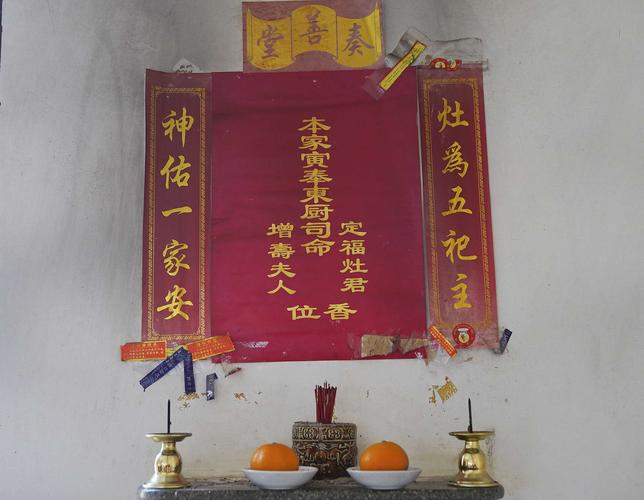 奏善堂
灶為五祀主
本家寅奉東厨司命
定福灶君
增壽夫人
香位
神佑一家安